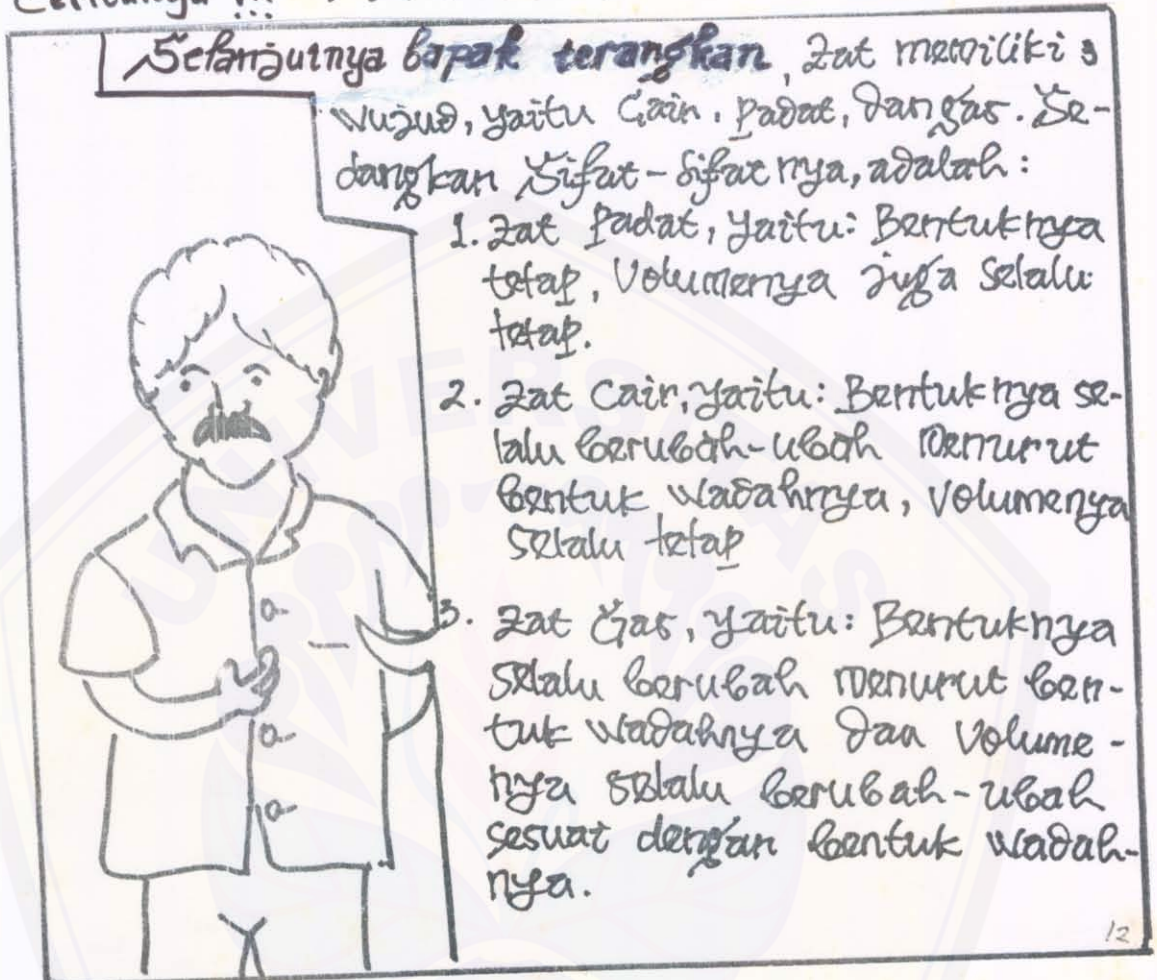 Selanjutnya bapak terangkan, zat memiliki 3
wujud, yaitu Cair, padat, dan gas. Se-
dangkan Sifat-sifatnya, adalah:
1. Zat Padat, yaitu: Bentuknya
tetap, Volumenya juga selalu
tetap.
2. Zat Cair, yaitu: Bentuknya se-
lalu berubah-ubah menurut
bentuk wadahnya, Volumenya
selalu tetap
3. Zat Gas, yaitu: Bentuknya
selalu berubah menurut ben-
tuk wadahnya dan Volume-
nya selalu berubah-ubah
sesuai dengan bentuk wadah-
nya.
12
UNIVERSITAS